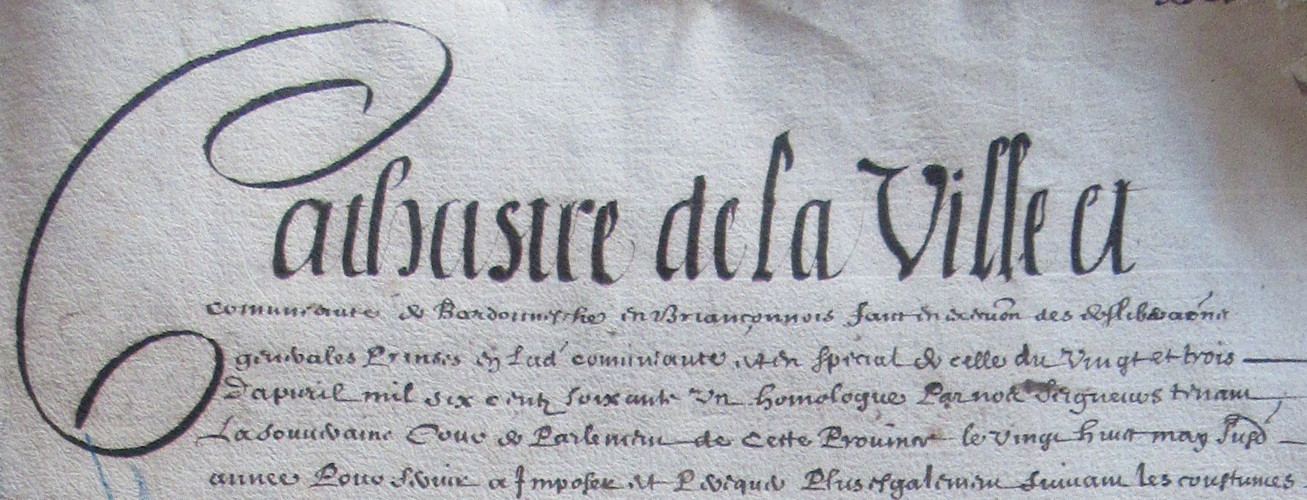 Cathastre de la Ville et
comunnaute de Bardonnesche en Briançonnois faict en execuõn des deslibераõns
generalles Prinses en lad comunaute et en special de celle du Vingt et trois
D'apuril mil six centz soixante Un homologue Par nos Seigneurs tenant
La souueraine Cour de Parlement de Cette Prouince le Vingt huict may susd
annee Pour seruir a Imposer et Pereque Plus esgalement suiuant les coustumes